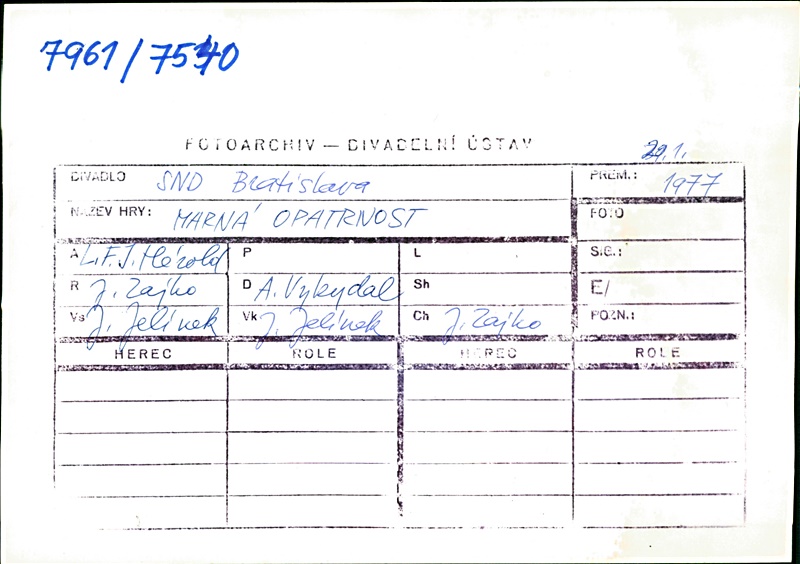 7961/7540
FOTOARCHIV — DIVADELNÍ ÚSTAV
21.1.
DIVADLO SND Bratislava PREM.: 1977
NÁZEV HRY: MARNÁ OPATRNOST FOTO
A L.F.J. Hérold P L SIG.:
R J. Zajko D A. Vykydal Sh E/
Vs J. Jelínek Vk J. Jelínek Ch J. Zajko POZN.:
HEREC ROLE HEREC ROLE